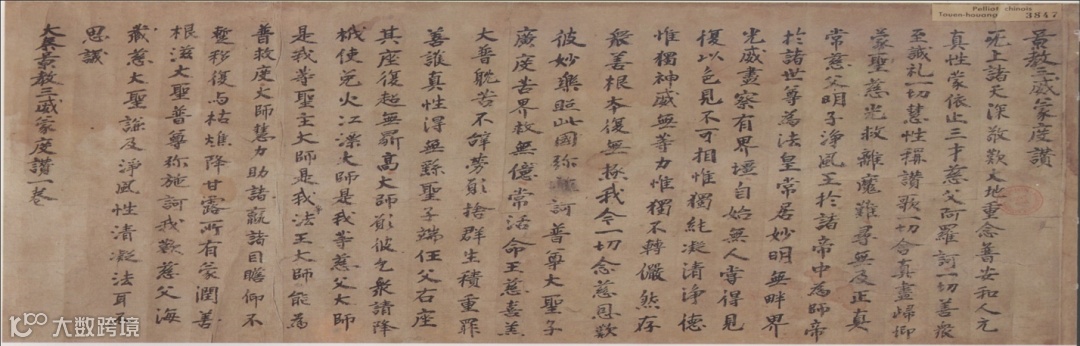 Pelliot chinois
Touen-houang 3847
景教三威蒙度讚
无上諸天深敬歎大地重念普安和人元
真性蒙依止三才慈父阿羅訶一切善衆
至誠礼一切慧性稱讚歌一切含真盡歸仰
蒙聖慈光救離魔難尋無及正真
常慈父明子淨風王於諸帝中為師帝
於諸世尊為法皇常居妙明無畔界
光威盡察有界壃自始無人嘗得見
復以色見不可相惟獨純凝清淨德
惟獨神威無等力惟獨不轉儼然存
衆善根本復無極我今一切念慈恩歎
彼妙樂照此國弥施訶普尊大聖子
廣度苦界救無億常活命王慈喜羔
大普耽苦不辞勞願捨群生積重罪
善護真性得無繇聖子端任父右座
其座復超無鼎高大師願彼乞衆請降
栰使免火江漂大師是我等慈父大師
是我等聖主大師是我法王大師能為
普救度大師慧力助諸羸諸目瞻仰不
蹔移復与枯燋降甘露所有蒙潤善
根滋大聖普尊弥施訶我歎慈父海
藏慈大聖謙及淨風性清凝法耳不
思議
大秦景教三威蒙度讚一卷
大数跨境